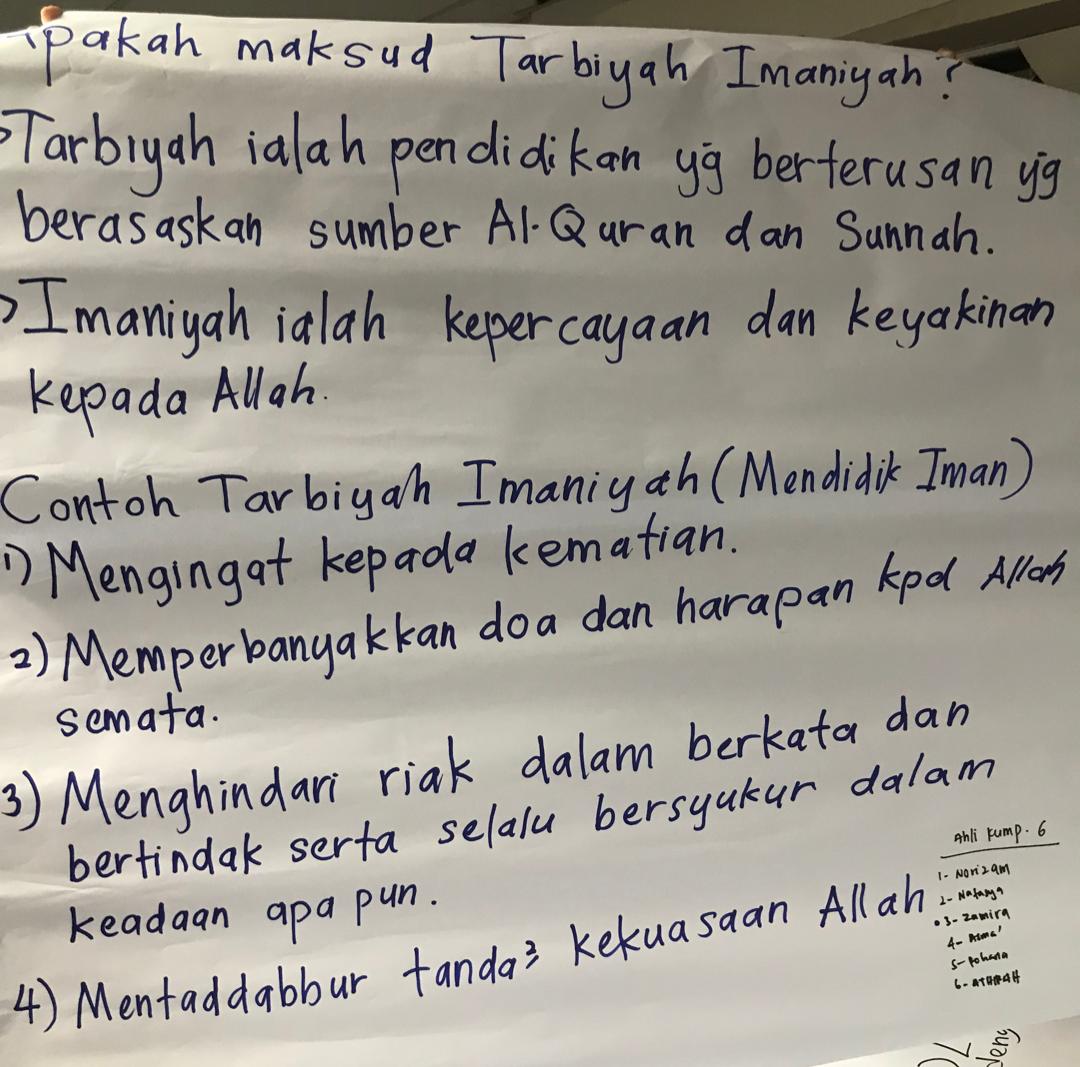 Apakah maksud Tarbiyah Imaniyah?
>Tarbiyah ialah pendidikan yg berterusan yg
berasaskan sumber Al-Quran dan Sunnah.
>Imaniyah ialah kepercayaan dan keyakinan
kepada Allah.
Contoh Tarbiyah Imaniyah (Mendidik Iman)
1) Mengingat kepada kematian.
2) Memperbanyakkan doa dan harapan kpd Allah
semata.
3) Menghindari riak dalam berkata dan
bertindak serta selalu bersyukur dalam
keadaan apa pun.
4) Mentaddabbur tanda² kekuasaan Allah
Ahli Kump. 6
1- Norizam
2- Natasya
3- Zamira
4- Asma'
5- Rohana
6- ATHRAH